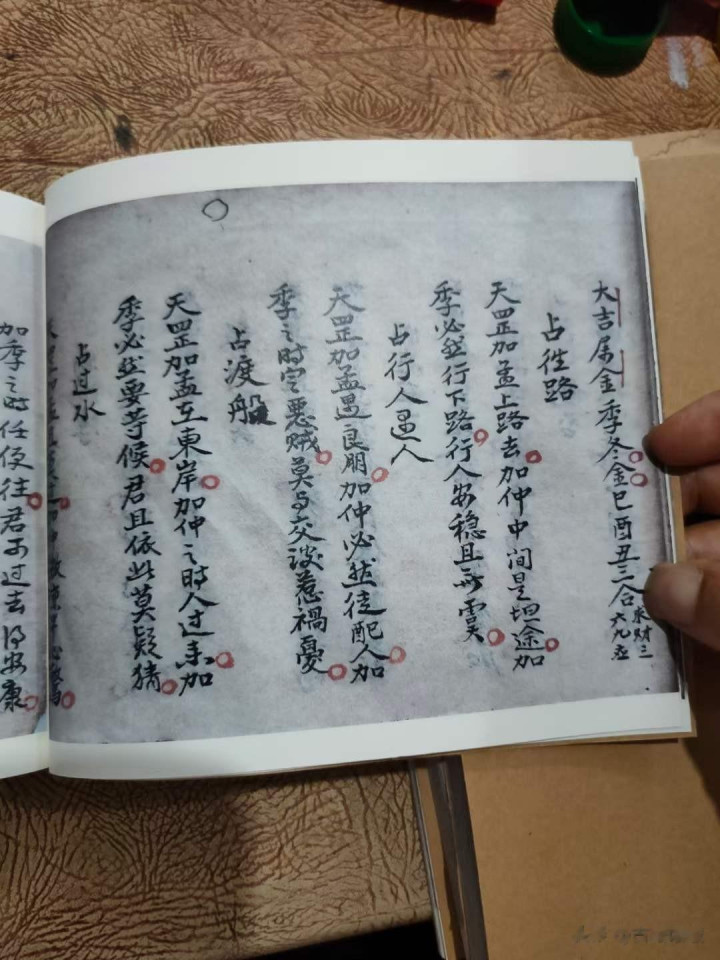 大吉属金季冬金巳酉丑三合求财三六九应
占徃路
天罡加孟上路去加仲中间是坦途加
季必然行下路行人安稳且無
占行人遇人
天罡加孟遇良朋加仲必然徒配人加
季之时定惡贼莫与交談惹禍憂
占渡船
天罡加孟在東岸加仲之时人过未加
季必然要等候君且依此莫疑猜
占过水
加季之时任使往君子过去得安康